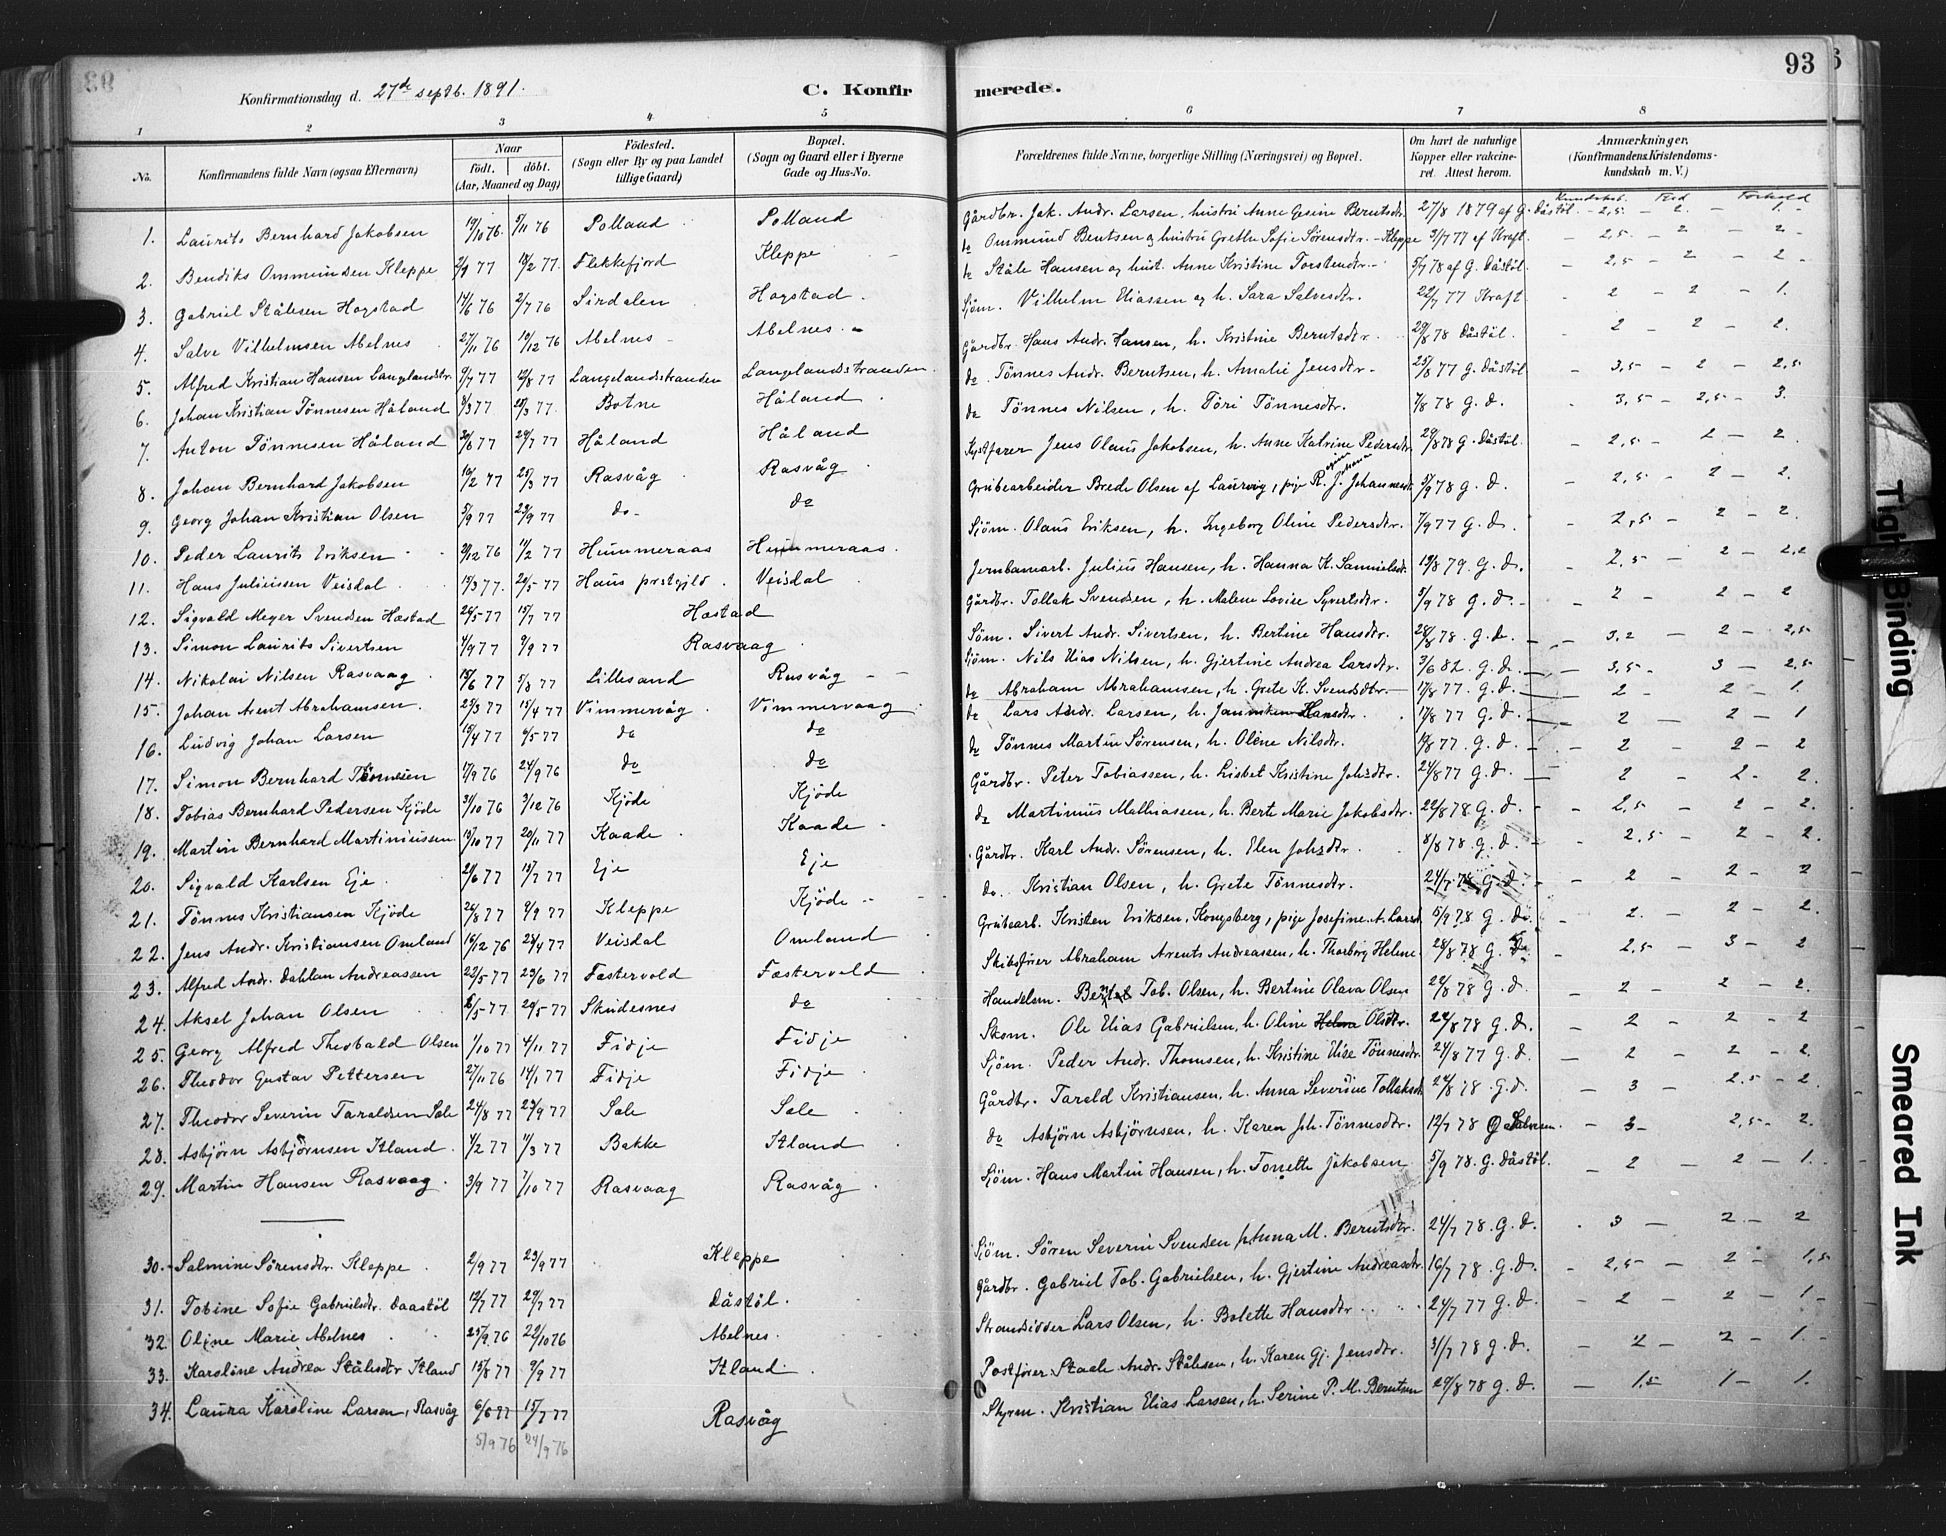 93
Konfirmationsdag d. 27de septb. 1891.
C. Konfirmerede.
1 2 3 4 5 6 7 8
No. Konfirmandens fulde Navn (ogsaa Efternavn) Naar født. døbt. (Aar, Maaned og Dag) Födested. (Sogn eller By og paa Landet tillige Gaard) Bopæl. (Sogn og Gaard eller i Byerne Gade og Hus-No. Forældrenes fulde Navne, borgerlige Stilling (Næringsvei) og Bopæl. Om havt de naturlige Kopper eller vakcineret. Attest herom. Anmærkninger. (Konfirmandens Kristendomskundskab m. V.)
Kundskab. Flid Forhold
1. Laurits Bernhard Jakobsen 19/10 76. 5/11 76 Polland Polland Gårdbr. Jak. Andr. Larsen, hustru Anne Gesine Berntsdtr. 27/8 1879 af G. Dåstöl - 2,5 - 2 - 1. -
2. Bendiks Ommundsen Kleppe 2/9 77 18/2 77. Flekkefjord Kleppe do Ommund Bentsen og hustru Grethe Sofie Sørensdtr. - Kleppe 3/7 77 af Kraft. - 2,5 - 2 - 2 -
3. Gabriel Stålesen Hogstad 14/6 76 2/7 76 Sirdalen Hogstad. do Ståle Hansen og hust. Anne Kristine Torstendtr. - 5/7 78 af G. Dåstöl. - 2,5 - 2 - 2 -
4. Salve Vilhelmsen Abelnes 27/11 76 10/12 76 Abelnes Abelnes. Sjöm. Vilhelm Eliassen og h. Sara Salvesdtr. 22/7 77 Kraft - 2 - 2 - 1.
5. Alfred Kristian Hansen Langlandstr. 9/7 77 12/8 77 Langelandsstranden Langelandsstranden. Gårdbr. Hans Andr. Hansen, h. Kristine Berntsdtr. 29/8 78 Dåstöl. - 2 - 2 - 2.
6. Johan Kristian Tönnesen Håland 8/3 77 25/3 77. Botne Håland do. Tönnes Andr. Berntsen, h. Amalie Jensdtr. - 25/8 77 G. Dåstöl - 3,5 - 2 - 2,5
7. Anton Tönnesen Håland 30/6 77 29/7 77 Håland Håland do Tönnes Nilsen, h. Töri Tönnesdtr. 7/8 78 G. D. - 3,5 - 2,5 - 3.
8. Johan Bernhard Jakobsen 10/2 77 25/3 77 Rasvåg Rasvåg Kystfarer Jens Olaus Jakobsen, h. Anne Katrine Pedersdtr. 29/8 78 G. Dåstöl. - 2,5 - 2 - 2.
9. Georg Johan Kristian Olsen 5/9 77 23/9 77 do. do Grubearbeider Brede Olsen af Laurvig, pige R. J. Johannesdtr. 5/9 78 G. D. - 2,5 - 2 - 2.
10. Peder Laurits Eriksen 9/12 76 11/2 77 Hummeraas Hummeraas. Sjöm. Olaus Eriksen, h. Ingeborg Oline Pedersdtr. 7/9 77 G. D. - 2,5 - 2 - 2.
11. Hans Juliussen Veisdal 14/3 77. 20/5 77 Haus prstgjld. Veisdal Jernbanearb. Julius Hansen, h. Hanna K. Samuelsdtr. 19/8 79 G. D. - 2,5 - 2 - 2,2
12. Sigvald Meyer Svendsen Hæstad 24/5 77 15/7 77 Hæstad Gårdbr. Tollak Svendsen, h. Malene Lovise Syvertsdtr. 5/9 78 G. D. - 2 - 2 - 2
13. Simon Laurits Sivertsen 4/9 77 9/9 77 Rasvaag Sjöm. Sivert Andr. Sivertsen, h. Bertine Hansdtr. 28/8 78. G. D. - 3,2 - 2 - 2,5
14. Nikolai Nilsen Rasvaag 15/6 77 5/8 77 Lillesand Rasvåg - Sjöm. Nils Elias Nilsen, h. Gjertine Andrea Larsdtr. 3/6 82. G. D. - 3,5 - 3 - 2,5
15. Johan Arent Abrahamsen. 23/3 77 15/4 77 Vimmervåg. Vimmervaag do Abraham Abrahamsen, h. Grete K. Svendsdtr. 17/8 77. G. D. - 2 - 2 - 1.
16. Ludvig Johan Larsen 15/4 77 6/5 77 do do do Lars Andr. Larsen, h. Janniken Hansdtr. 17/8 77 G. D. - 2 - 2 - 1
17. Simon Bernhard Tönnesen 17/9 76 24/9 76 do do do Tönnes Martin Sørensen, h. Oline Nilsdtr. 19/8 77. G. D. - 2 - 2 - 2
18. Tobias Bernhard Pedersen Kjöde 31/10 76 3/12 76 Kjöde Kjöde Gårdbr. Peter Tobiassen, h. Lisbet Kristine Johsdtr. 24/8 77 G. D. - 2 - 2 - 2.
19. Martin Bernhard Martiniussen 19/10 77 20/11 77 Kaade Kaade do Martinius Mathiassen, h. Berte Marie Jakobsdtr. 22/8 78. G. D. - 2,5 - 2 - 2.
20. Sigvald Karlsen Eje. 21/6 77 15/7 77 Eje Eje Gårdbr. Karl Andr. Sørensen, h. Elen Johsdtr. 8/8 78. G. D. - 2,5 - 2 - 2.
21. Tönnes Kristiansen Kjöde 26/8 77 9/9 77 Kleppe Kjöde do. Kristian Olsen, h. Grete Tönnesdtr. 24/7 78 G. D. - 2 - 2 - 2
22. Jens Andr. Kristiansen Omland 16/12 76 28/4 77 Veisdal Omland Grubearb. Kristen Eriksen, Kongsberg, pige Josefine A. Larsd. 5/9 78 G. D. - 2. - 2 - 2.
23. Alfred Andr. Dahlan Andreassen 22/5 77 23/6 77 Fæstervold Fæstervold Skibsfører Abraham Arents Andreassen, h. Thorborg Helene 28/8 78 G. D. - 2,5 - 3 - 2
24. Aksel Johan Olsen 8/5 77 20/5 77 Skudesnes do Handelsm. Bernt Tob. Olsen, h. Bertine Olava Olsen 22/8 78 G. D. - 2 - 2 - 2.
25. Georg Alfred Theobald Olsen 1/10 77 4/11 77 Fidje Fidje Skom. Ole Elias Gabrielsen, h. Oline Helena Olsdtr. 22/8 78 G. D. - 2 - 2 - 2
26. Theodor Gustav Pettersen 27/11 76 14/1 77 Fidje Fidje Sjöm. Peder Andr. Thomsen, h. Kristine Elise Tönnesdtr. 24/8 77 G. D. - 2 - 2 - 2.
27. Theodor Severin Taraldsen Sæle 24/8 77 23/9 77 Sæle Sæle Gårdbr. Tarald Kristiansen, h. Anna Severine Tollaksdtr. 24/8 78. G. D. - 3 - 2,5 - 2.
28. Asbjörn Asbjörnsen Itland 1/2 77 4/3 77 Bakke Itland do Asbjörn Asbjörnsen, h. Karen Joh. Tönnesdtr. 12/7 78 O Salvesen. - 3 - 2,5 - 2.
29. Martin Hansen Rasvaag 3/9 77 7/10 77 Rasvaag Rasvåg Sjöm. Hans Martin Hansen, h. Tonette Jakobsen 5/9 78. G. Dåstöl. - 2 - 2 - 1.
30. Salmine Sörensdtr. Kleppe 2/9 77 23/9 77 Kleppe Sjöm. Søren Severin Svendsen h. Anna M. Berntsdtr. 24/7 78. G. D. - 3 - 2 - 2
31. Tobine Sofie Gabrielsdtr. Daastöl 12/7 77 29/7 77 Dåstöl. Gårdbr. Gabriel Tob. Gabrielsen, h. Gjertine Andreasdtr. 16/7 78. G. D. - 2,5 - 2 - 1,5
32. Oline Marie Abelnes 25/9 76 22/10 76 Abelnes. Strandsidder Lars Olsen, h. Bolette Hansdtr. 24/7 77 G. D. - 2 - 2 - 1 -
33. Karoline Andrea Stålesdtr Itland 15/8 77 9/9 77 Itland Postfører Staale Andr. Stålesen, h. Karen Gj. Jensdtr. 31/7 78 G. D. - 2 - 2 - 1. -
34. Laura Karoline Larsen, Rasvåg 6/6 77 15/7 77 Rasvåg Styrm. Kristian Elias Larsen, h. Serine P. M. Berntsen 29/8 78 G. D. - 1,5 1 - 1.
5/9 76 24/9 76
Tight Binding
Smeared Ink